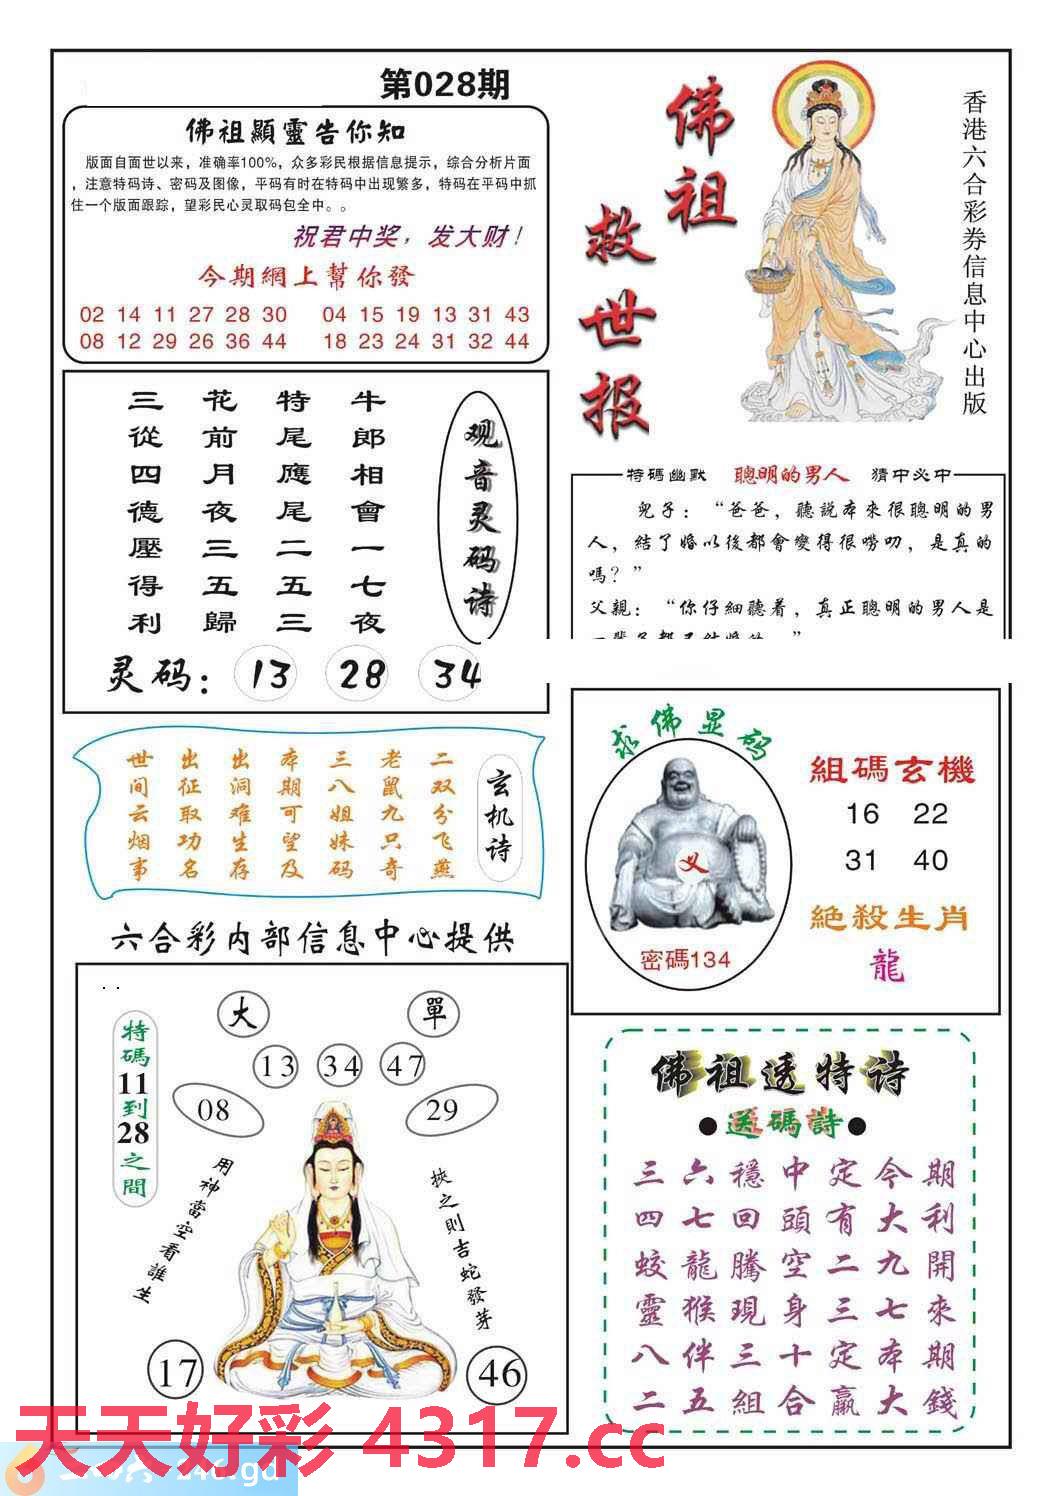 第028期
佛祖顯靈告你知
版面自面世以来，准确率100%，众多彩民根据信息提示，综合分析片面
，注意特码诗、密码及图像，平码有时在特码中出现繁多，特码在平码中抓
住一个版面跟踪，望彩民心灵取码包全中。。
祝君中奖，发大财！
今期網上幫你發
02 14 11 27 28 30 04 15 19 13 31 43
08 12 29 26 36 44 18 23 24 31 32 44
佛祖
救世报
香港六合彩券信息中心出版
观音灵码诗
牛郎相會一七夜
特尾應尾二五三
花前月夜三五歸
三從四德壓得利
灵码：13 28 34
特碼幽默 聰明的男人 猜中必中
兒子：“爸爸，聽説本來很聰明的男
人，結了婚以後都會變得很嘮叨，是真的
嗎？”
父親：“你仔細聽着，真正聰明的男人是
玄机诗
二双分飞燕
老鼠九只奇
三八姐妹码
本期可望及
出洞难生存
出征取功名
世间云烟事
求佛显码
密碼134
組碼玄機
16 22
31 40
絶殺生肖
龍
六合彩内部信息中心提供
大 單
13 34 47
08 29
特碼11到28之間
用神當空看誰生
挾之則吉蛇發芽
17 46
佛祖透特诗
●送碼詩●
三六穩中定今期
四七回頭有大利
蛟龍騰空二九開
靈猴現身三七來
八伴三十定本期
二五組合贏大錢
天天好彩 4317.cc
246.gd